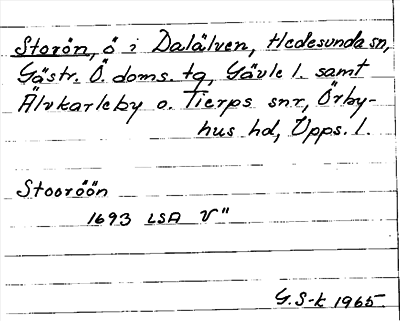 Storön, ö i Dalälven, Hedesunda sn,
Gästr. Ö. doms. tg, Gävle l. samt
Älvkarleby o. Tierps snr, Örby-
hus hd, Upps. l.
Stooröön
1693 LSA V"
G. S-k 1965.